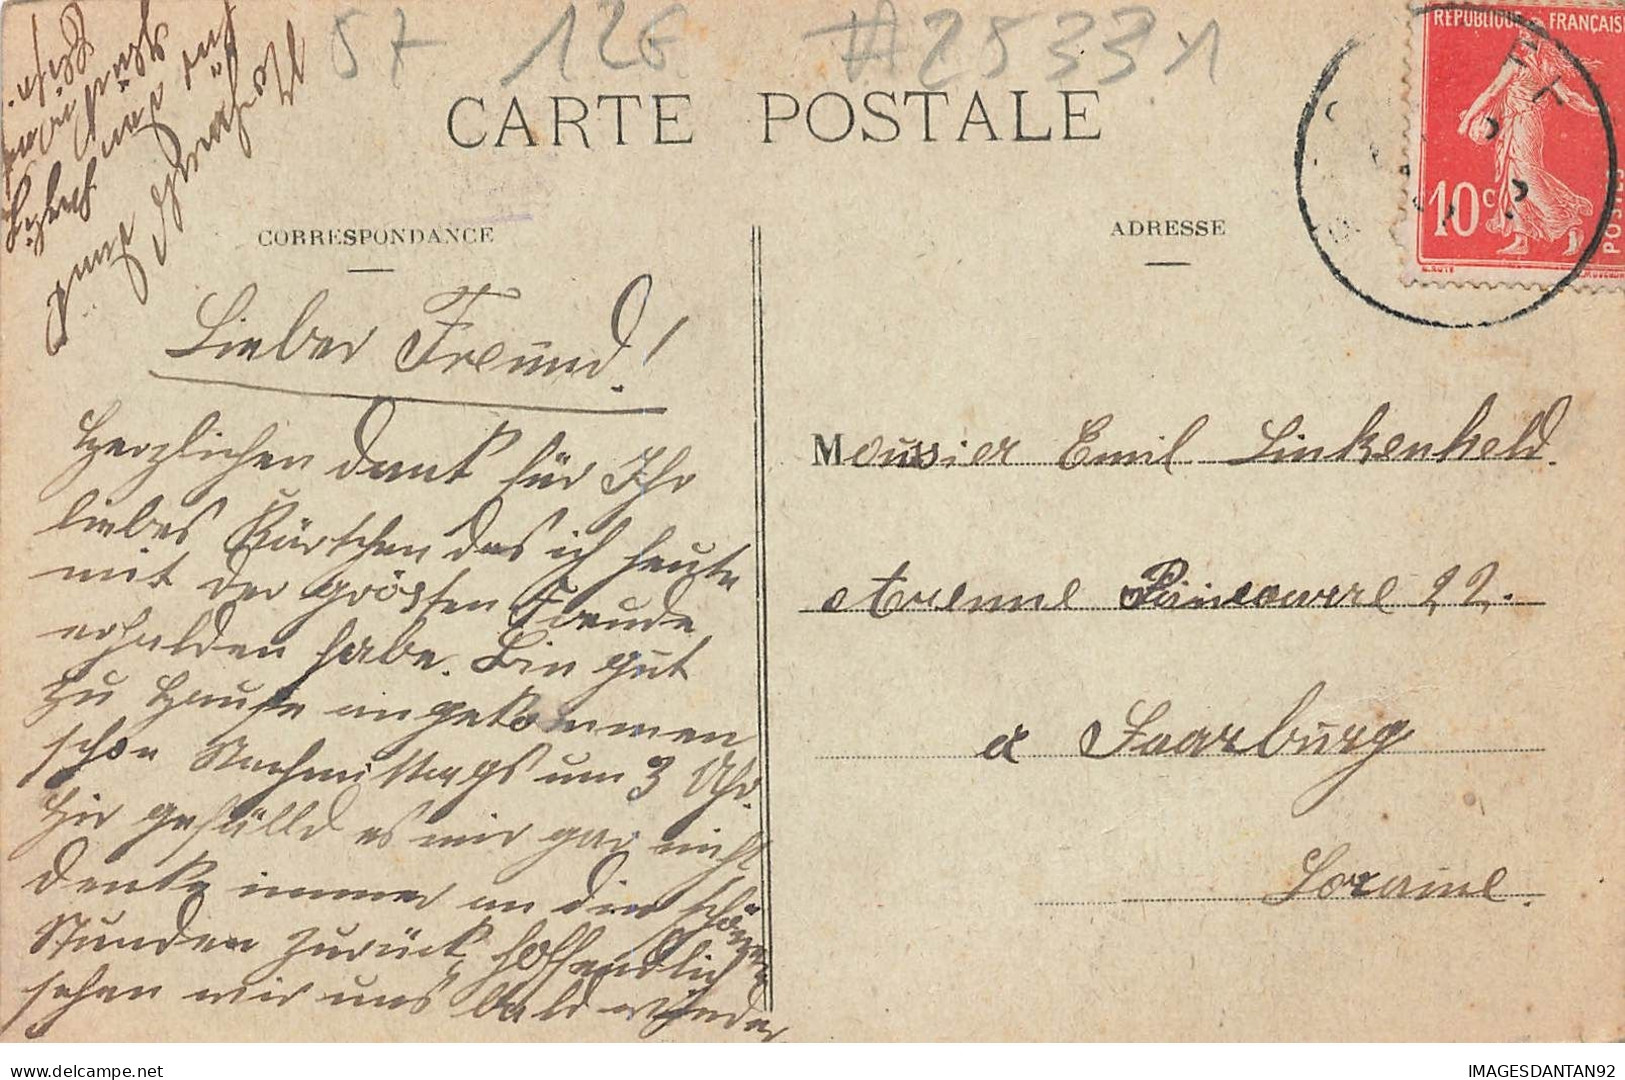 57 126 #25331
CARTE POSTALE
REPUBLIQUE FRANÇAISE
10c
POSTES
CORRESPONDANCE
ADRESSE
Lieber Freund!
Herzlichen dank für Ihr
liebes Kärtchen das ich heute
mit der grössten Freude
erhalden habe. Bin gut
zu Hause angekommen
schon Nachmittags um 3 Uhr.
Hir gefälld es mir gar nicht
denke immer an die schönen
Stunden zurück, hoffendlich
sehen wir uns bald wieder
Monsier Emil Linkenheld.
Avenue Poincarre 22.
à Saarburg
Loraine.
IMAGESDANTAN92